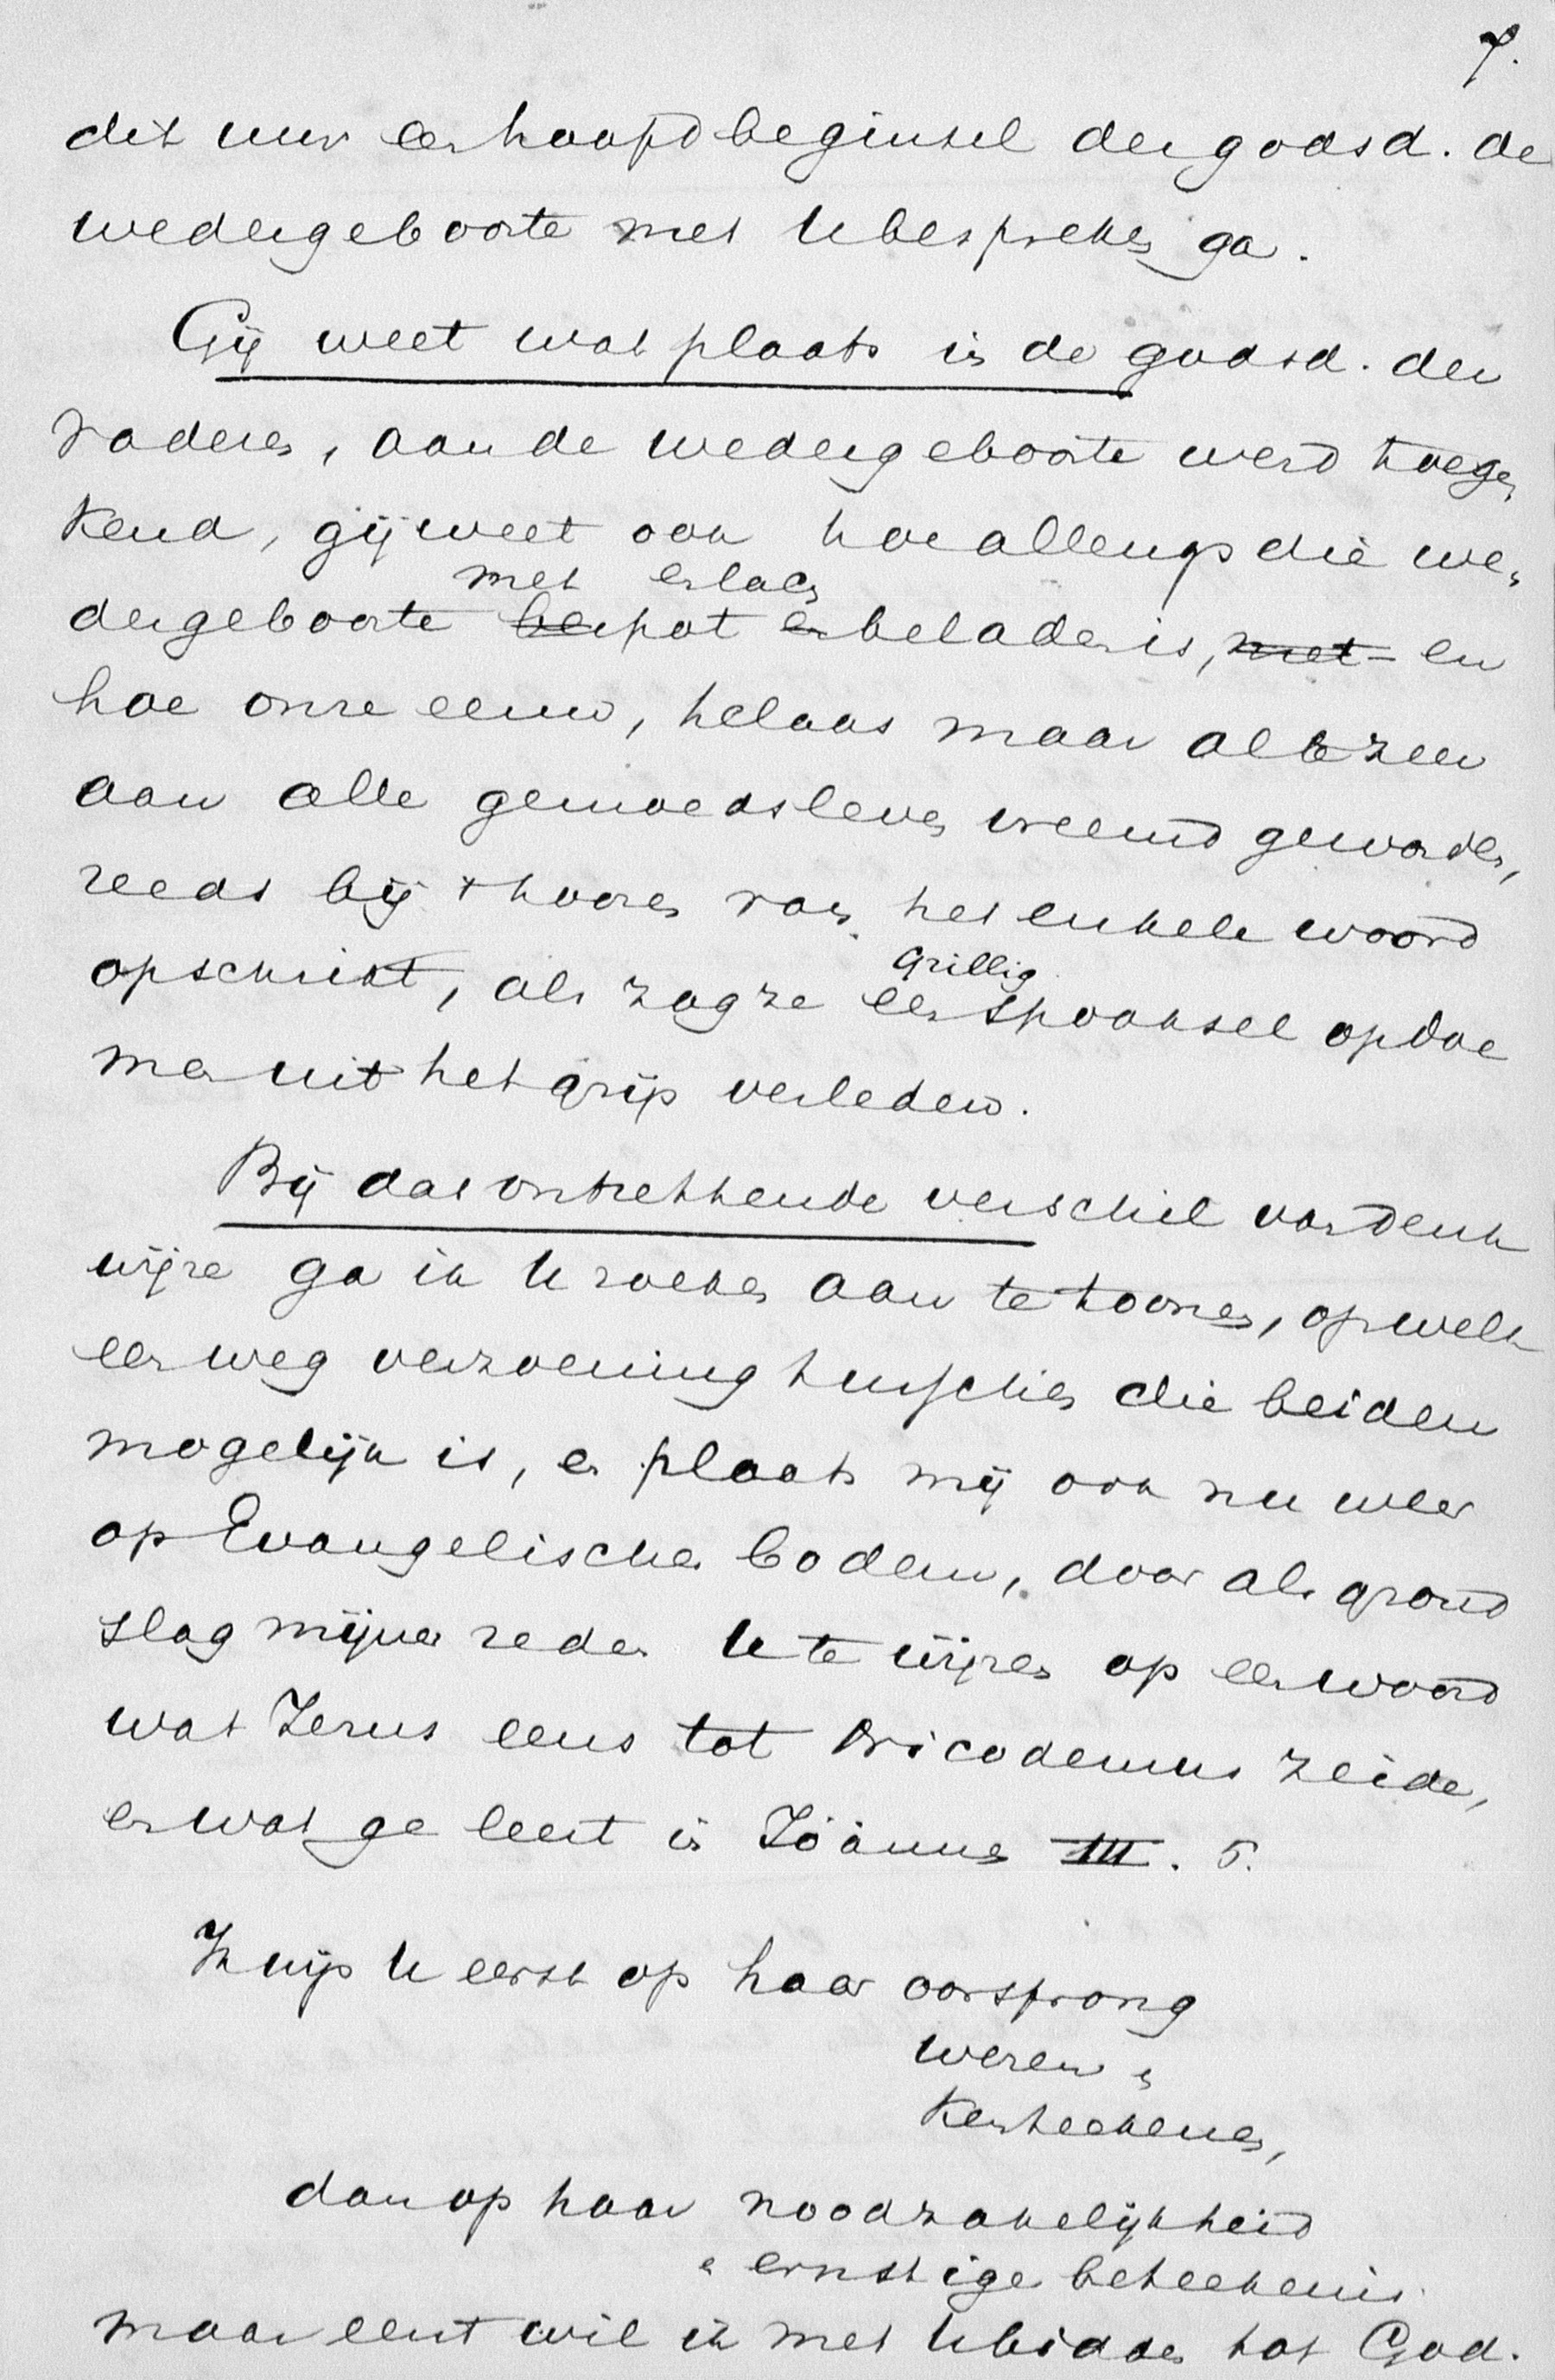 7.
dit uur een hoofdbeginsel der godsd. de
wedergeboorte met U bespreken ga.
Gij weet wat plaats in de godsd. der
vaderen, aan de wedergeboorte werd toege,
kend, gij weet ook hoe allengs die we,
met en laag
dergeboorte bespot en beladen is, met en
hoe onze eeuw, helaas maar al te zeer
aan alle gemoedsleven vreemd geworden,
reeds bij 't hooren van het enkele woord
grillig
opschrikt, als zag ze een spooksel opdoe
men uit het grijs verleden.
Bij dat ontrekkende verschil van denk
wijze ga ik U zoeken aan te toonen, op welk
een weg verzoening tusschen die beiden
mogelijk is, en plaats mij ook nu weer
op Evangelischen bodem, door als grond
slag mijner reden U te wijzen op een woord
wat Jezus eens tot Nicodemus zeide,
en wat ge leest in Joännes III. 5.
Ik wijs U eerst op haar oorsprong
wezen en
kenteekenen,
dan op haar noodzakelijkheid
en ernstige beteekenis.
maar eerst wil ik met U bidden tot God.